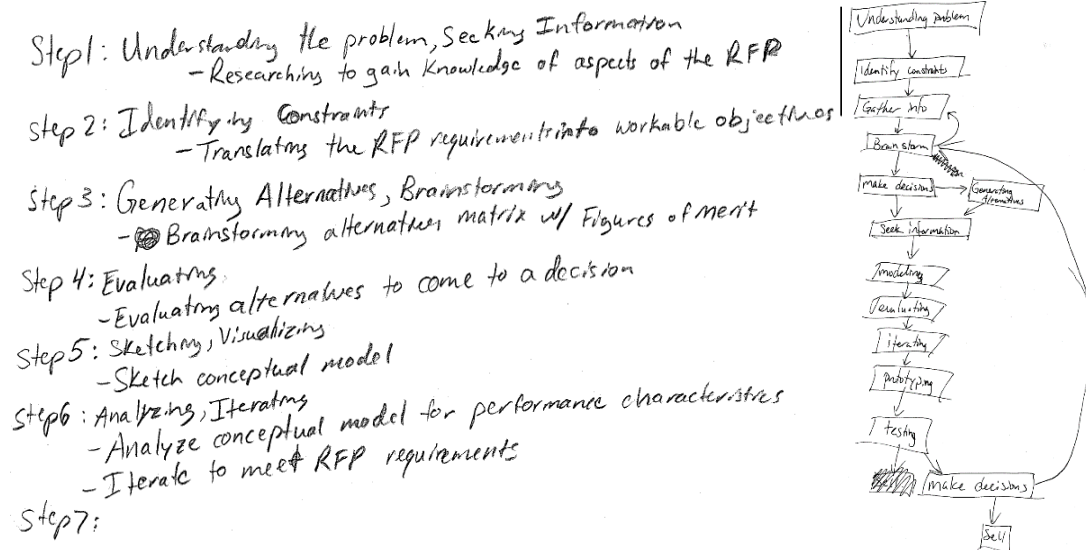 Step 1: Understanding the problem, Seeking Information
- Researching to gain knowledge of aspects of the RFP
Step 2: Identifying Constraints
- Translating the RFP requirements into workable objectives
Step 3: Generating Alternatives, Brainstorming
- Brainstorming alternatives matrix w/ Figures of merit
Step 4: Evaluating
- Evaluating alternatives to come to a decision
Step 5: Sketching, Visualizing
- Sketch conceptual model
Step 6: Analyzing, Iterating
- Analyze conceptual model for performance characteristics
- Iterate to meet RFP requirements
Step 7:
Understanding problem
Identify constraints
Gather info
Brainstorm
make decisions
Generating Alternatives
Seek information
modeling
evaluating
iterating
prototyping
testing
make decisions
Sell